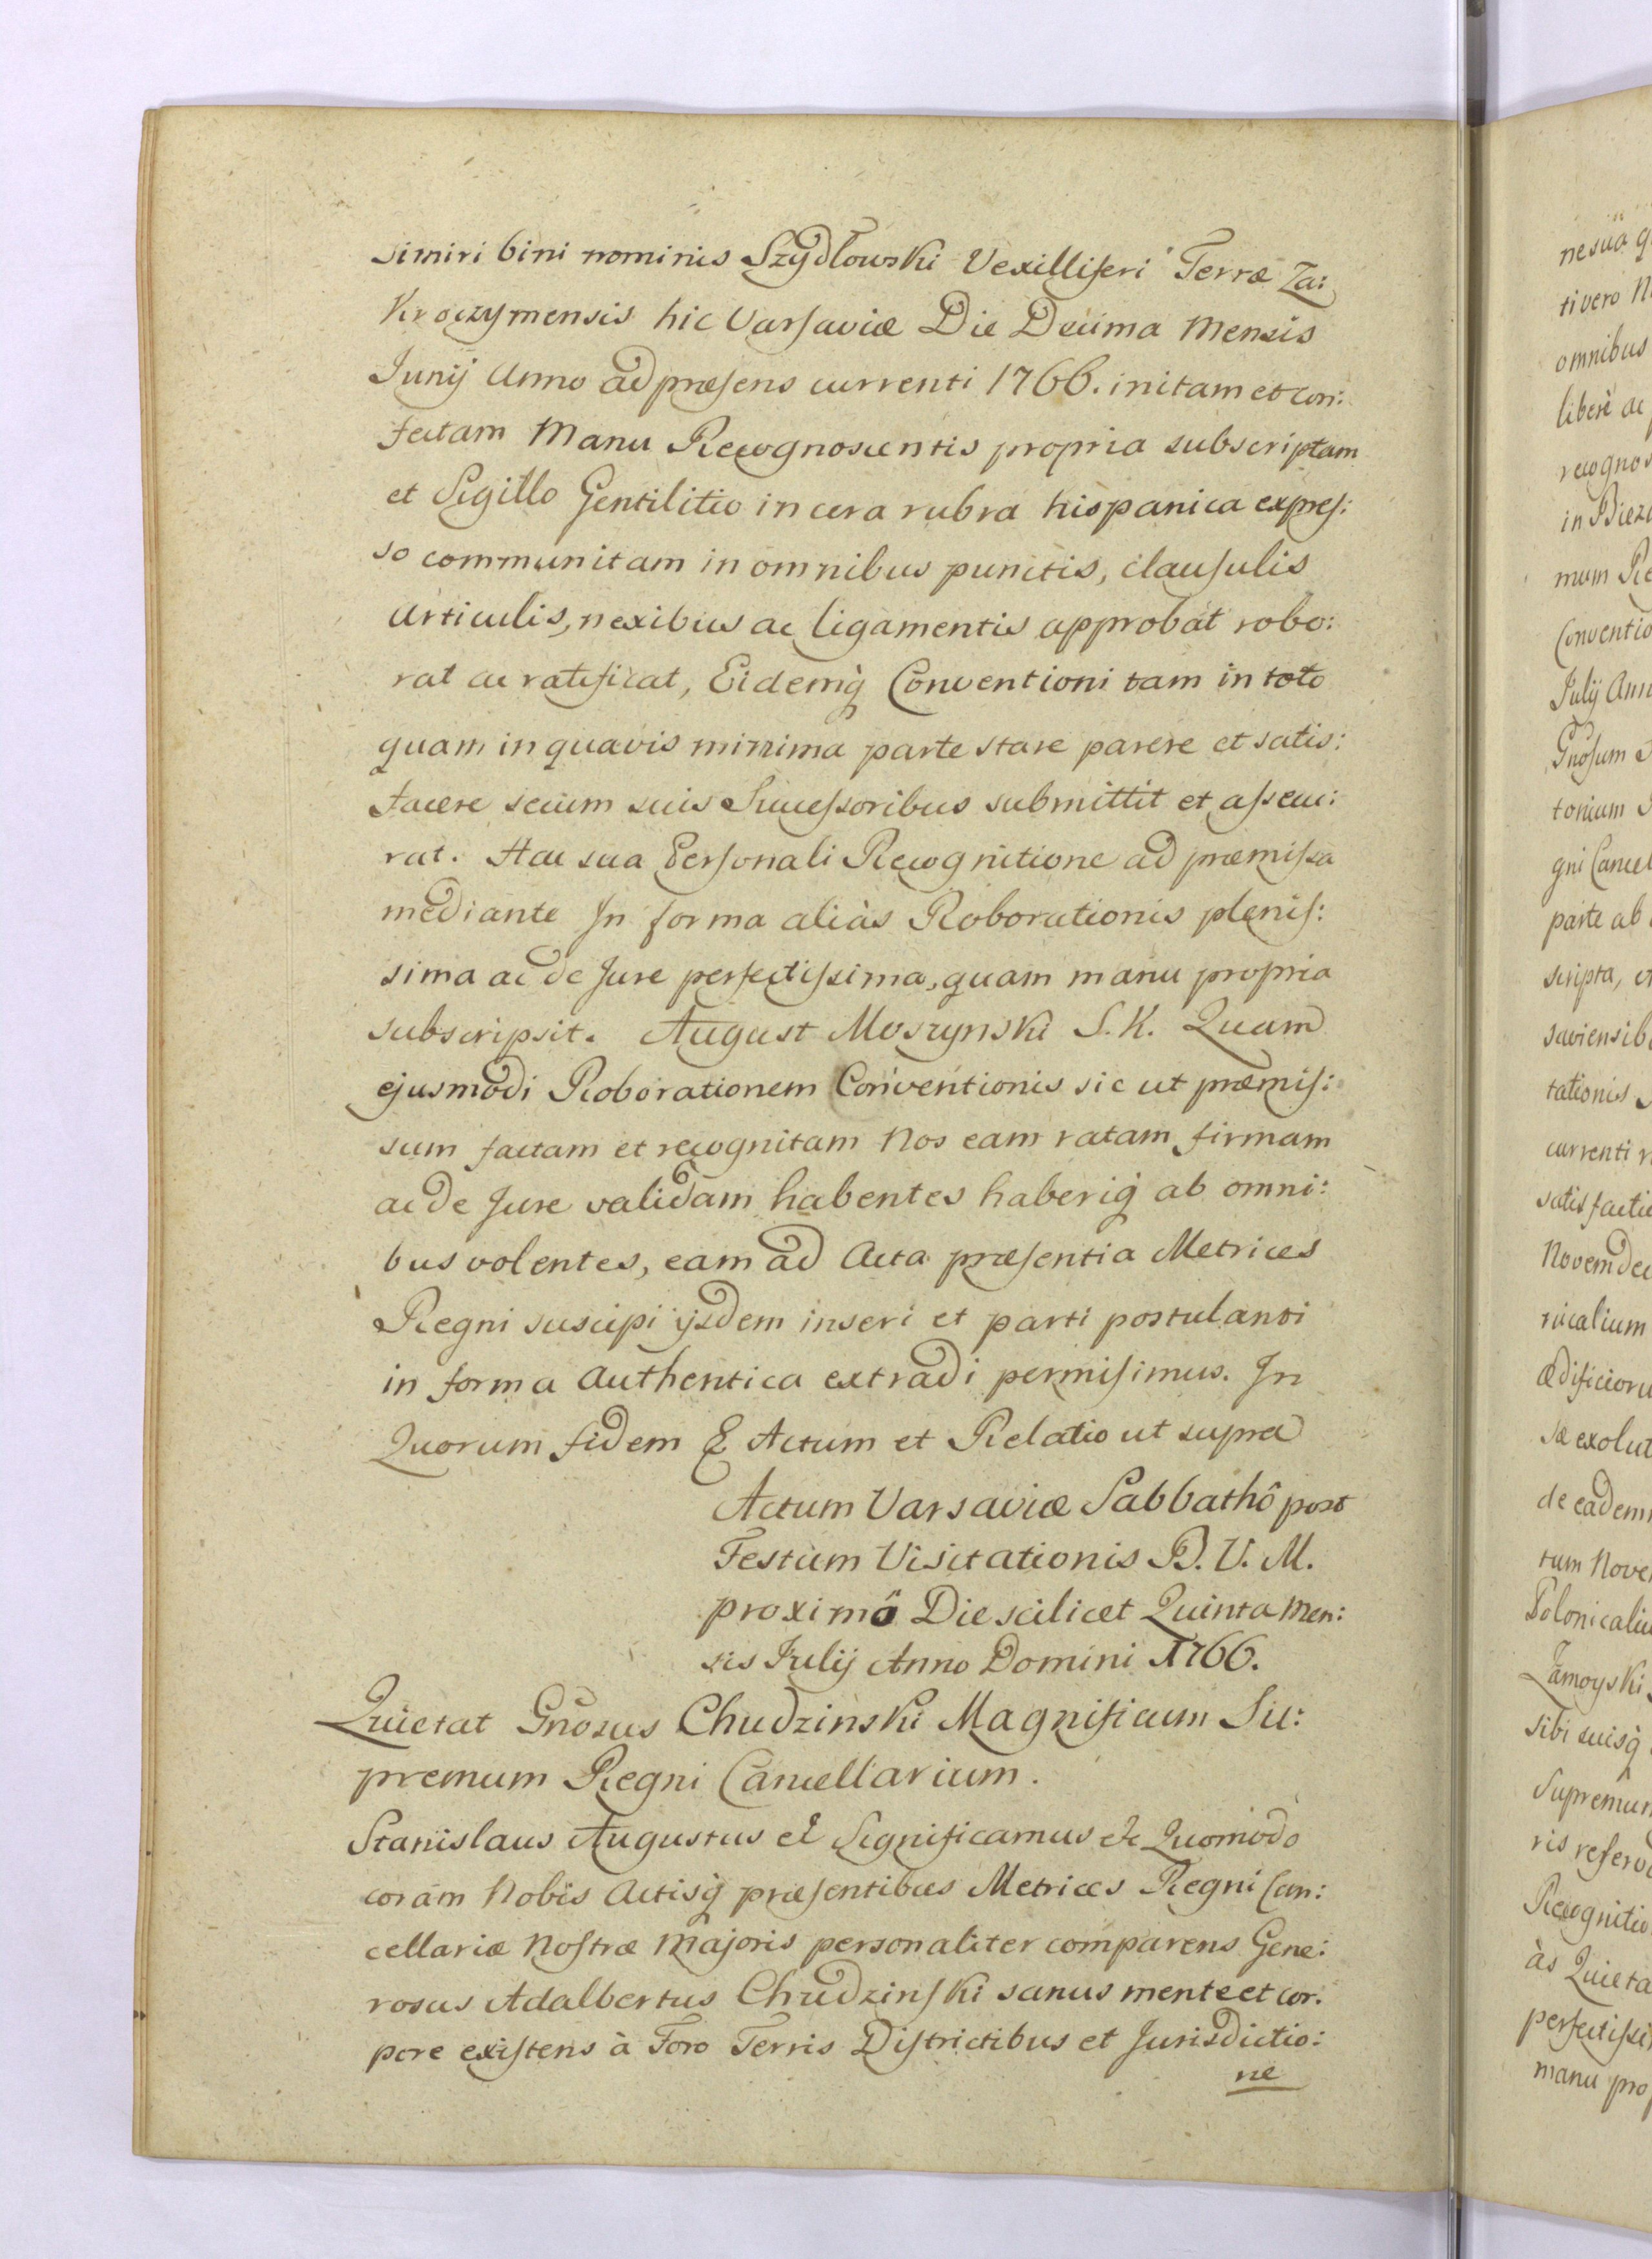 simiri bini nominis Szydłowski Vexilliferi Terræ Za:
Kroczymensis hic Varsaviæ Die Decima Mensis
Junij Anno ad præsens currenti 1766. initam et con:
fectam Manu Recognoscentis propria subscriptam
et Sigillo Gentilitio in cera rubra hispanica expres:
so communitam in omnibus punctis, clausulis
Articulis, nexibus ac ligamentis approbat robo:
rat ac ratificat, Eidemq̃ Conventioni tam in toto
quam in quavis minima parte stare parere et satis:
facere secum suis Successoribus submittit et assecu:
rat. Hac sua Personali Recognitione ad præmissa
mediante In forma aliàs Roborationis plenis:
sima ac de Jure perfectissima, quam manu propria
subscripsit. August Moszynski S. K. Quam
ejusmodi Roborationem Conventionis sic ut præmis:
sum factam et recognitam Nos eam ratam firmam
ac de Jure validam habentes haberiq̃ ab omni:
bus volentes, eam ad Acta præsentia Metrices
Regni suscipi ijsdem inseri et parti postulanti
in forma Authentica extradi permisimus. In
Quorum fidem & Actum et Relatio ut supra
Actum Varsaviæ Sabbathô post
Festum Visitationis B. V. M.
proximô Die scilicet Quinta Men:
sis Julij Anno Domini 1766.
Quietat Gnosus Chudzinski Magnificum Su:
premum Regni Cancellarium.
Stanislaus Augustus et Significamus etc Quomodo
coram Nobis Actisq̃ præsentibus Metrices Regni Can:
cellariæ Nostræ Majoris personaliter comparens Gene:
rosus Adalbertus Chudzinski sanus mente et cor:
pore existens à Foro Terris Districtibus et Jurisdictio:
ne
nesua q
tivero N
omnibus
liberè ac
recognos
in Biez
mum Re
Conventio
Julij Ann
Gnosum
torium
gni Cancel
parte ab
scripta, et
saviensib
tationis
currenti
satisfactio
Novemdec
ricalium
Ædificioru
sæ exolut
de eadem
tum Nove
Polonicaliu
Zamoyski
sibi suisq̃
Supremum
ris reserv
Recognitio
às Quieta
perfectissi
manu prop